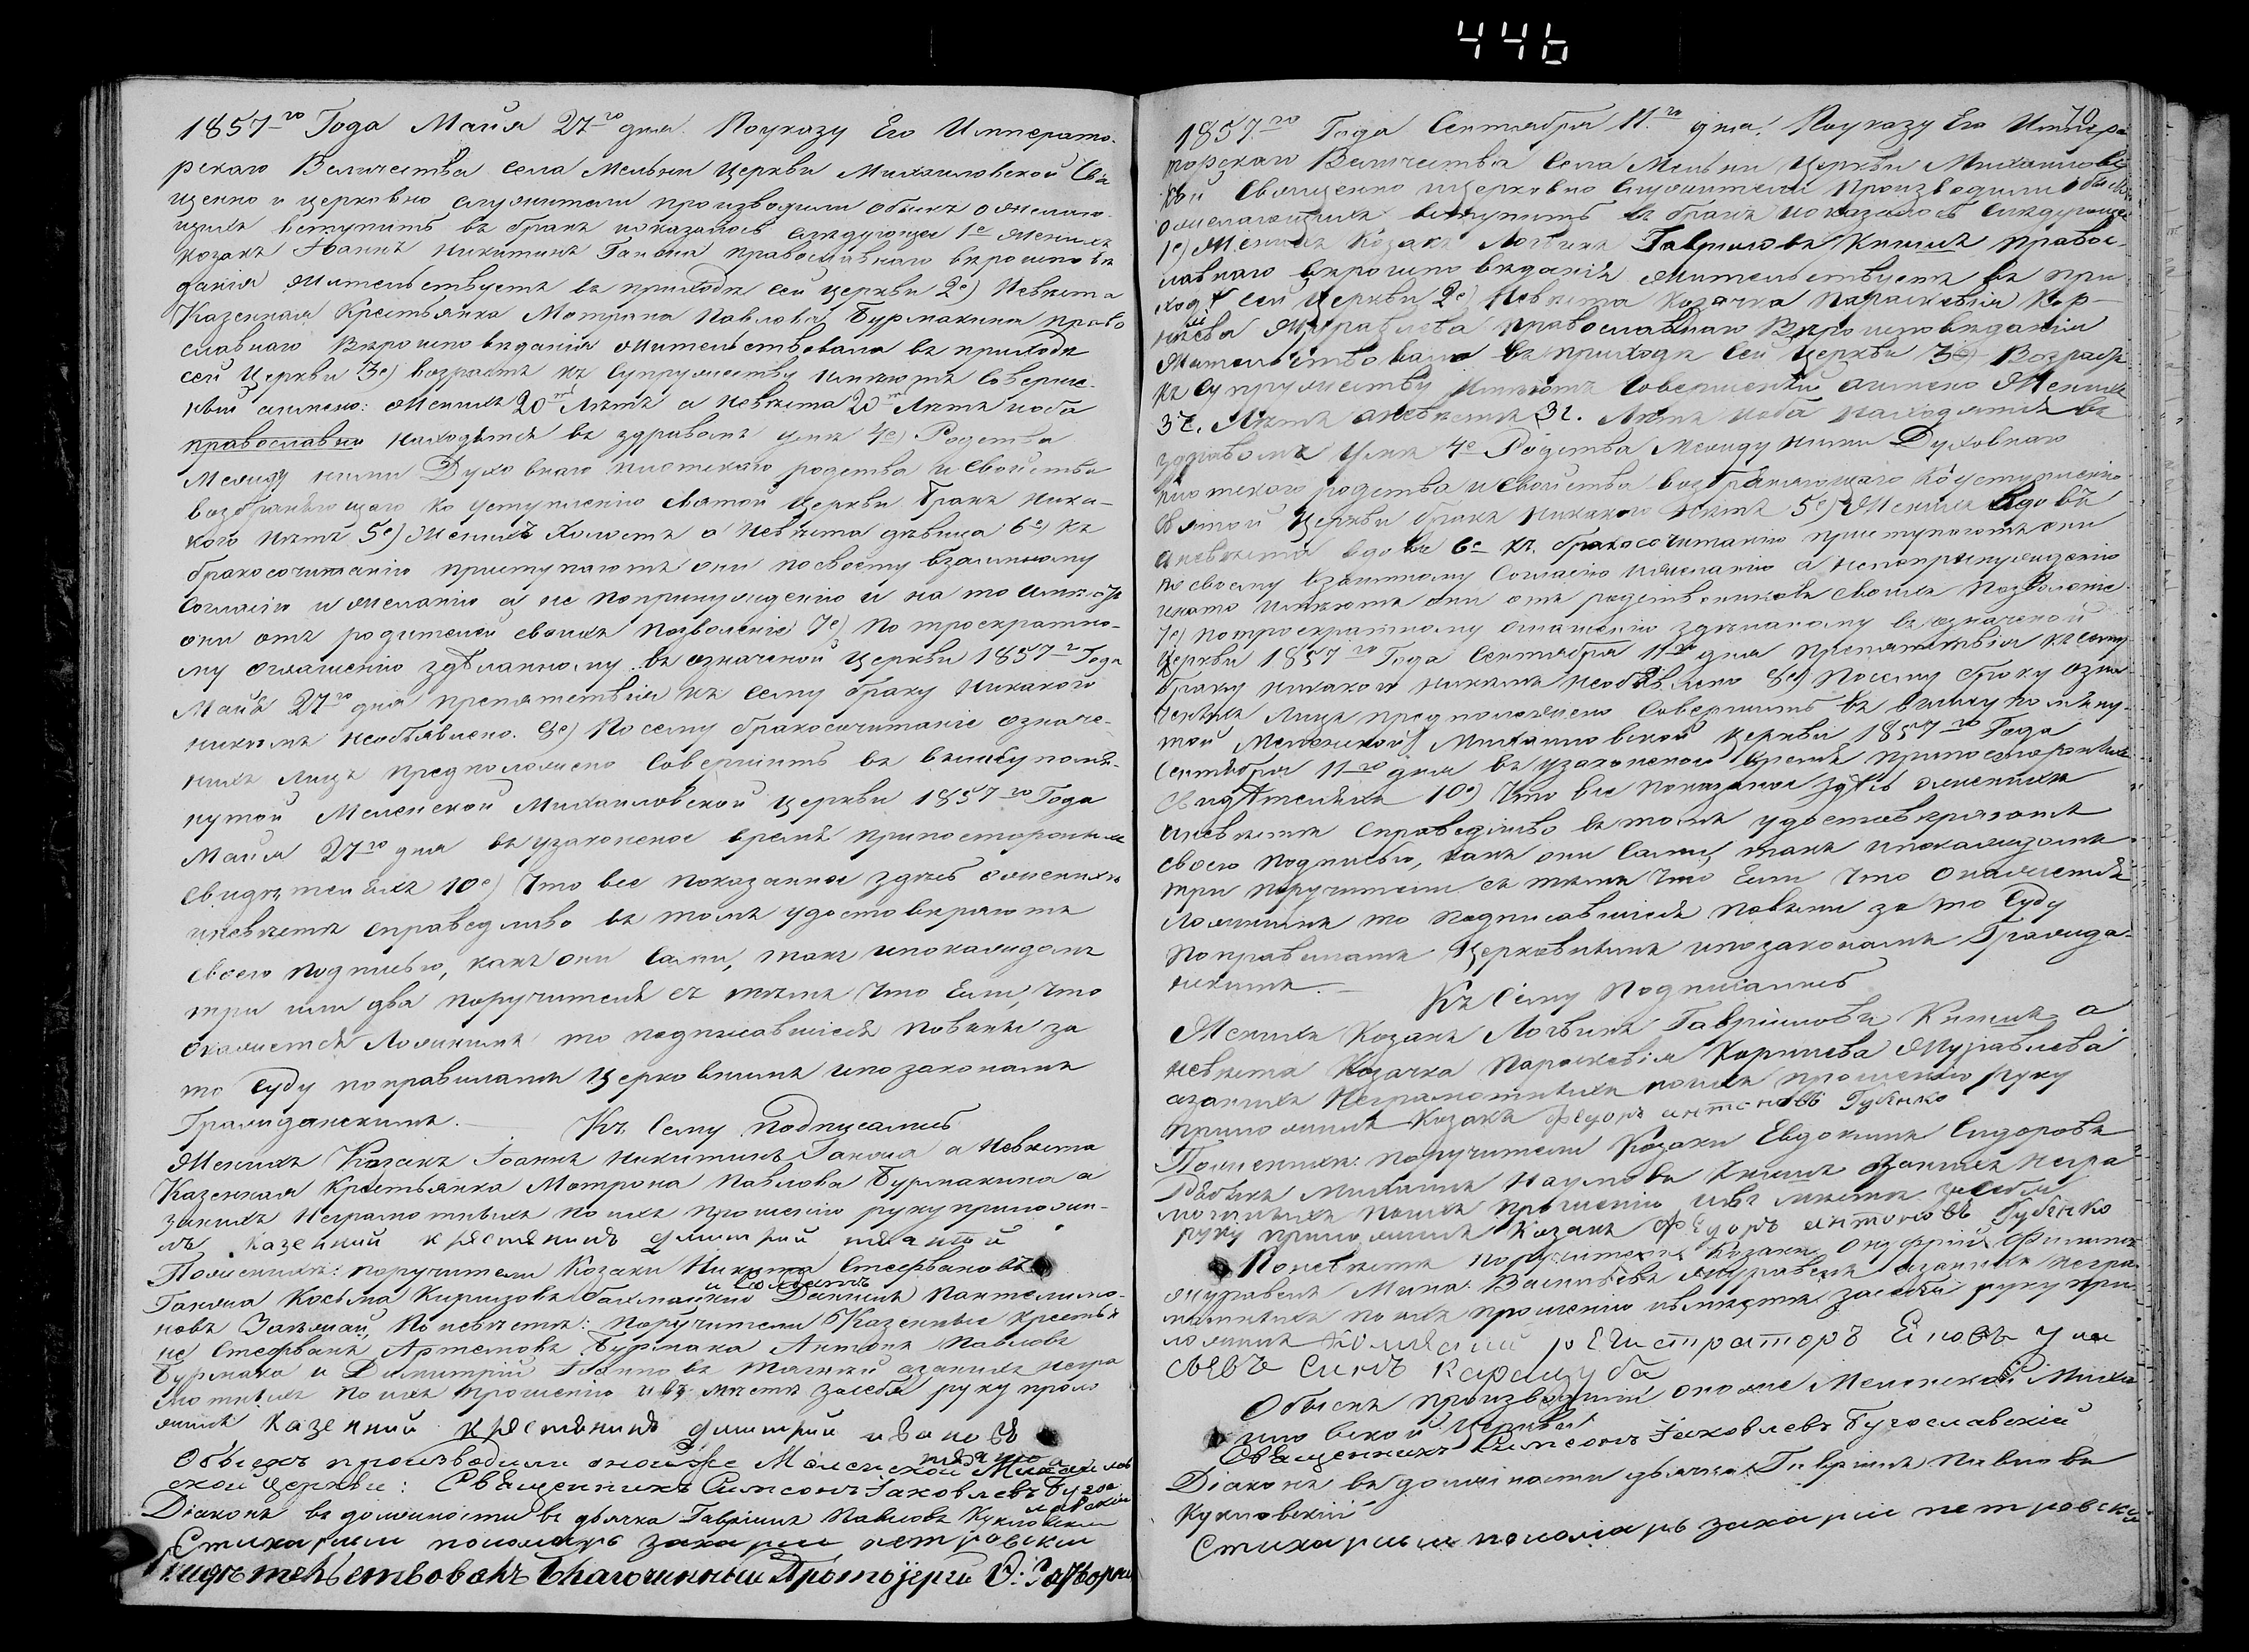 446
1857-го Года Маия 27-го дня. Поуказу Его Императо-
рскаго Величества села Мельни Церкви Михаиловской Свя
щенно и церковно служители производили обыскъ ожелаю-
щихъ вступить въ бракъ иоказалось слѣдующее 1е Женихъ
козакъ Іоаннъ Никитинъ Ганжа православнаго вѣроисповѣ
данія жительствуетъ въ приходѣ сей церкви 2е) Невѣста
Казенная Крестьянка Мотрона Павлова Бурмакина право
славнаго Вѣроисповѣданія жительствовала въ приходѣ
сей Церкви 3е) возрастъ къ Супружеству имѣютъ соверше-
нный аимено: Женихъ 20 Лѣтъ а невѣста 20 Лѣтъ иоба
православны находятся въ здравомъ умѣ 4е) Родства
Между ними Духовнаго плотскаго родства и свойства
возбраняющаго ко уступленію святой Церкви бракъ ника-
кого нѣтъ 5е) Женихъ Холостъ а Невѣста дѣвица 6е) къ
бракосочитанію приступаютъ они посвоему взаимному
Согласію и желанію а не попринуждению и на то имѣютъ
они отъ родителей своихъ позволеніе 7е) По троекратно-
му оглашенію здѣланному въ означеной Церкви 1857-го Года
Маия 27-го дня препятствія къ сему браку никакого
никѣмъ необъявлено. 8е) По сему бракосочитаніе означе-
нихъ лицъ предположено Совершить въ вышеупомя-
нутой Меленской Михаиловской Церкви 1857-го Года
Маия 27-го дня въ узаконеное время припостороннихъ
свидѣтеляхъ 10е) Что все показанное здѣсь оженихѣ
иневѣстѣ справедливо въ томъ удостовѣряютъ
своею подписью, какъ они сами, такъ ипокаждомъ
три или два поручителя съ тѣмъ что Если, что
окажется Ложнымъ то подписавшіеся повины за
то Суду поправиламъ Церковнымъ ипо законамъ
Гражданскимъ. — Къ сему подписались
Женихъ Козакъ Іоаннъ Никитинъ Ганжа а Невѣста
Казенная Крестьянка Мотрона Павлова Бурмакина а
занихъ Неграмотныхъ по ихъ прошенію руку приложи-
лъ казенний крестянинъ Димитрій
Поженихѣ: поручители Козаки Никита Стефановъ
Ганжа Косьма и Солдатъ Даніилъ Пантелимо-
новъ По невѣстѣ: поручители Казенные Крестья
не Стефанъ Артемовъ Бурмака Антонъ Павловъ
Бурмака и Димитрій Іоанновъ азанихъ негра
мотныхъ по ихъ прошенію ивъ мѣстѣ засебя руку прило
жилъ казенний крестянинъ Димитрий ивановъ
Обыскъ производили оной же Меленской Михаилов
ской Церкви: Священникъ Симеонъ Іаковлевъ Бугославскій
Діаконъ въ должности дьячка Гавріилъ Павловъ Кукловскій
Стихарный пономарь захарий петровский
Свидѣтельствовалъ Благочинный Протоіерей
70
1857-го Года Сентября 11-го дня. Поуказу Его Импера
торскаго Величества Села Мельни Церкви Михаиловс
кой Священно ицерковно служители производили обыскъ
ожелающихъ вступить въ бракъ иоказалось слѣдующее
1е) Женихъ Козакъ Логвинъ Гавриловъ Кишик правос-
лавнаго вѣроисповѣданія жительствуетъ въ при
ходѣ сей Церкви 2е) Невѣста Козачка Параскевія Кор-
нѣева Журавлева православнаго Вѣроисповѣданія
Жительствовала въ приходѣ сей Церкви 3е) Возрастъ
къ Супружеству Имѣютъ Совершенный аимено Женихъ
37. Лѣтъ аневѣста 32. Лѣтъ иоба находятся въ
здравомъ умѣ 4е Родства Между ними Духовнаго
плотскаго родства и свойства возбраняющаго ко уступленію
святой Церкви бракъ никакого нѣтъ 5е) Женихъ вдовъ
аневѣста вдова 6е къ. бракосочитанію приступаютъ они
по своему взаимному Согласію ижеланію а непопринуждению
инато имѣютъ они отъ родственниковъ своихъ позволеніе
7е) потроекратному оглашенію здѣланому въ означеной
Церкви 1857-го Года Сентября 11-го дня препятствія къ сему
браку никакого никѣмъ необъявлено 8е) Посему браку озна
ченныхъ лицъ предположено Совершить въ вышеупомяну-
той Меленской Михаиловской церкви 1857-го Года
Сентября 11-го дня въ узаконеное время припостороннихъ
свидѣтеляхъ 10е) Что все показаное здѣсь оженихѣ
иневѣстѣ справедливо въ томъ удостовѣряютъ
своею подписью, какъ они сами такъ ипокаждомъ
три поручители съ тѣмъ что Если что окажется
Ложнымъ то подписавшіеся повины за то Суду
поправиламъ Церковнымъ ипозаконамъ Гражда-
нскимъ. — Къ Сему Подписались
Женихъ Козакъ Логвинъ Гавриловъ Кишик а
невѣста Козачка Параскевія Корнѣева Журавлева
азанихъ Неграмотныхъ поихъ прошенію руку
приложилъ Козакъ Федоръ антоновъ Губенко
Поженихѣ: поручители Козаки Евдокимъ Сидоровъ
Михаилъ Наумовъ Кишик азанихъ негра
мотныхъ поихъ прошенію ивъ мѣстѣ засебя
руку приложилъ Козакъ Федоръ антоновъ Губенко
Поневѣстѣ поручители Козаки Онуфрий Филиповъ
Журавель Мина Васильевъ Журавель азанихъ негра
мотныхъ по ихъ прошенію ивмѣстѣ засебя руку при
ложилъ регистраторъ
синъ Карацуба
Обыскъ производили оноиже Меленской Михаи
ловской Церкви:
Священникъ Симеонъ Іаковлевъ Бугославскій
Діаконъ въ должности дьячка Гавріилъ Павловъ
Кукловскій
Стихарный пономарь захарий петровский